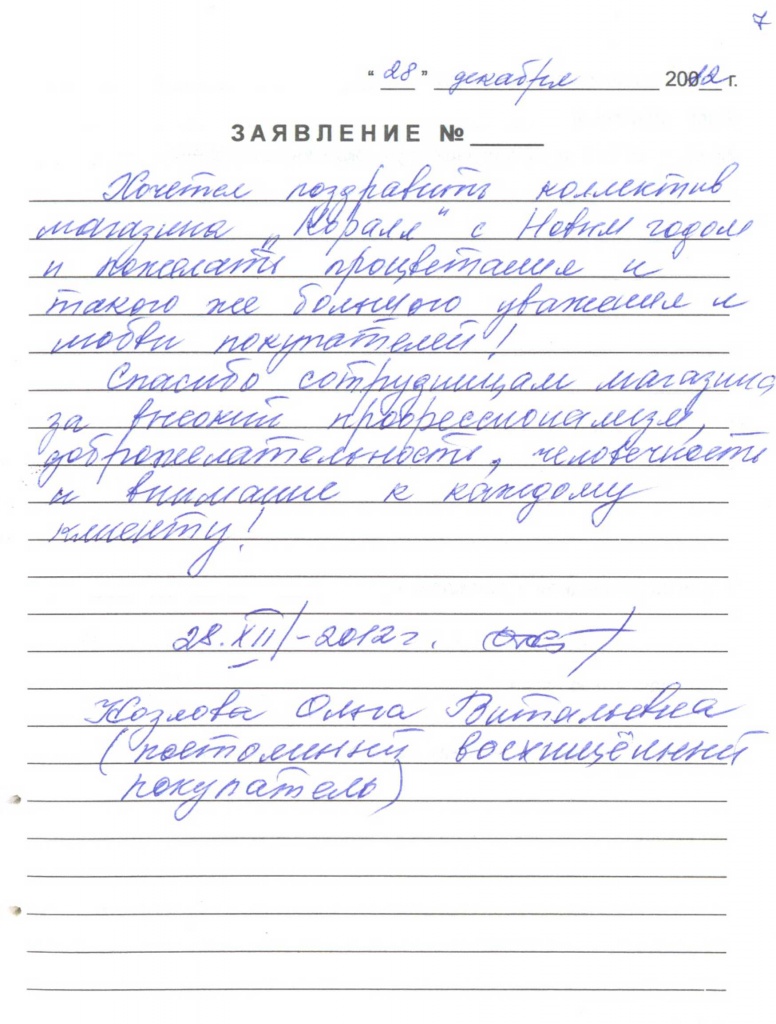 7
"28" декабря 2012 г.
ЗАЯВЛЕНИЕ №
Хочется поздравить коллектив
магазина „Коралл" с Новым годом
и пожелать процветания и
такого же большого уважения и
любви покупателей!
Спасибо сотрудницам магазина
за высокий профессионализм,
доброжелательность, человечность
и внимание к каждому
клиенту!
28.XII-2012г.
Козлова Ольга Витальевна
(постоянный восхищённый
покупатель)